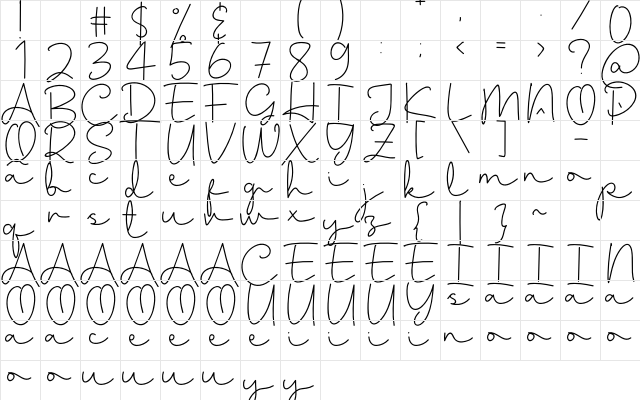 ! # $ % & ( ) + , . / 0
1 2 3 4 5 6 7 8 9 : ; < = > ? @
A B C D E F G H I J K L M N O P
Q R S T U V W X Y Z [ \ ] -
a b c d e f g h i j k l m n o p
q r s t u v w x y z { | } ~
A A A A A A C E E E E I I I I N
O O O O O O U U U U Y s a a a a
a a c e e e e i i i i n o o o o
o o u u u u y y